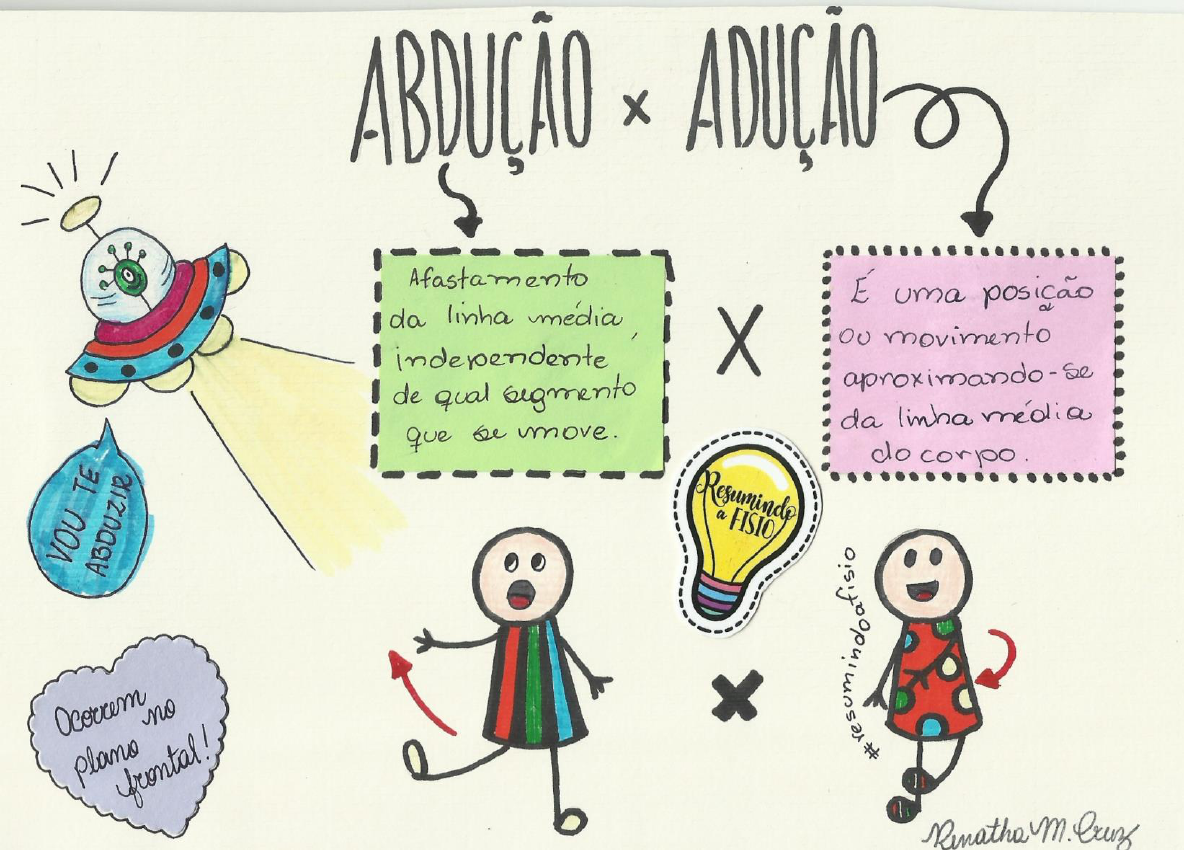 ABDUÇÃO x ADUÇÃO
Afastamento
da linha média,
independente
de qual segmento
que se move.
X
É uma posição
ou movimento
aproximando-se
da linha média
do corpo.
VOU TE
ABDUZIR
Resumindo
a FISIO
#resumindoafisio
Ocorrem
no
plano
frontal!
x
Renatha M. Cruz